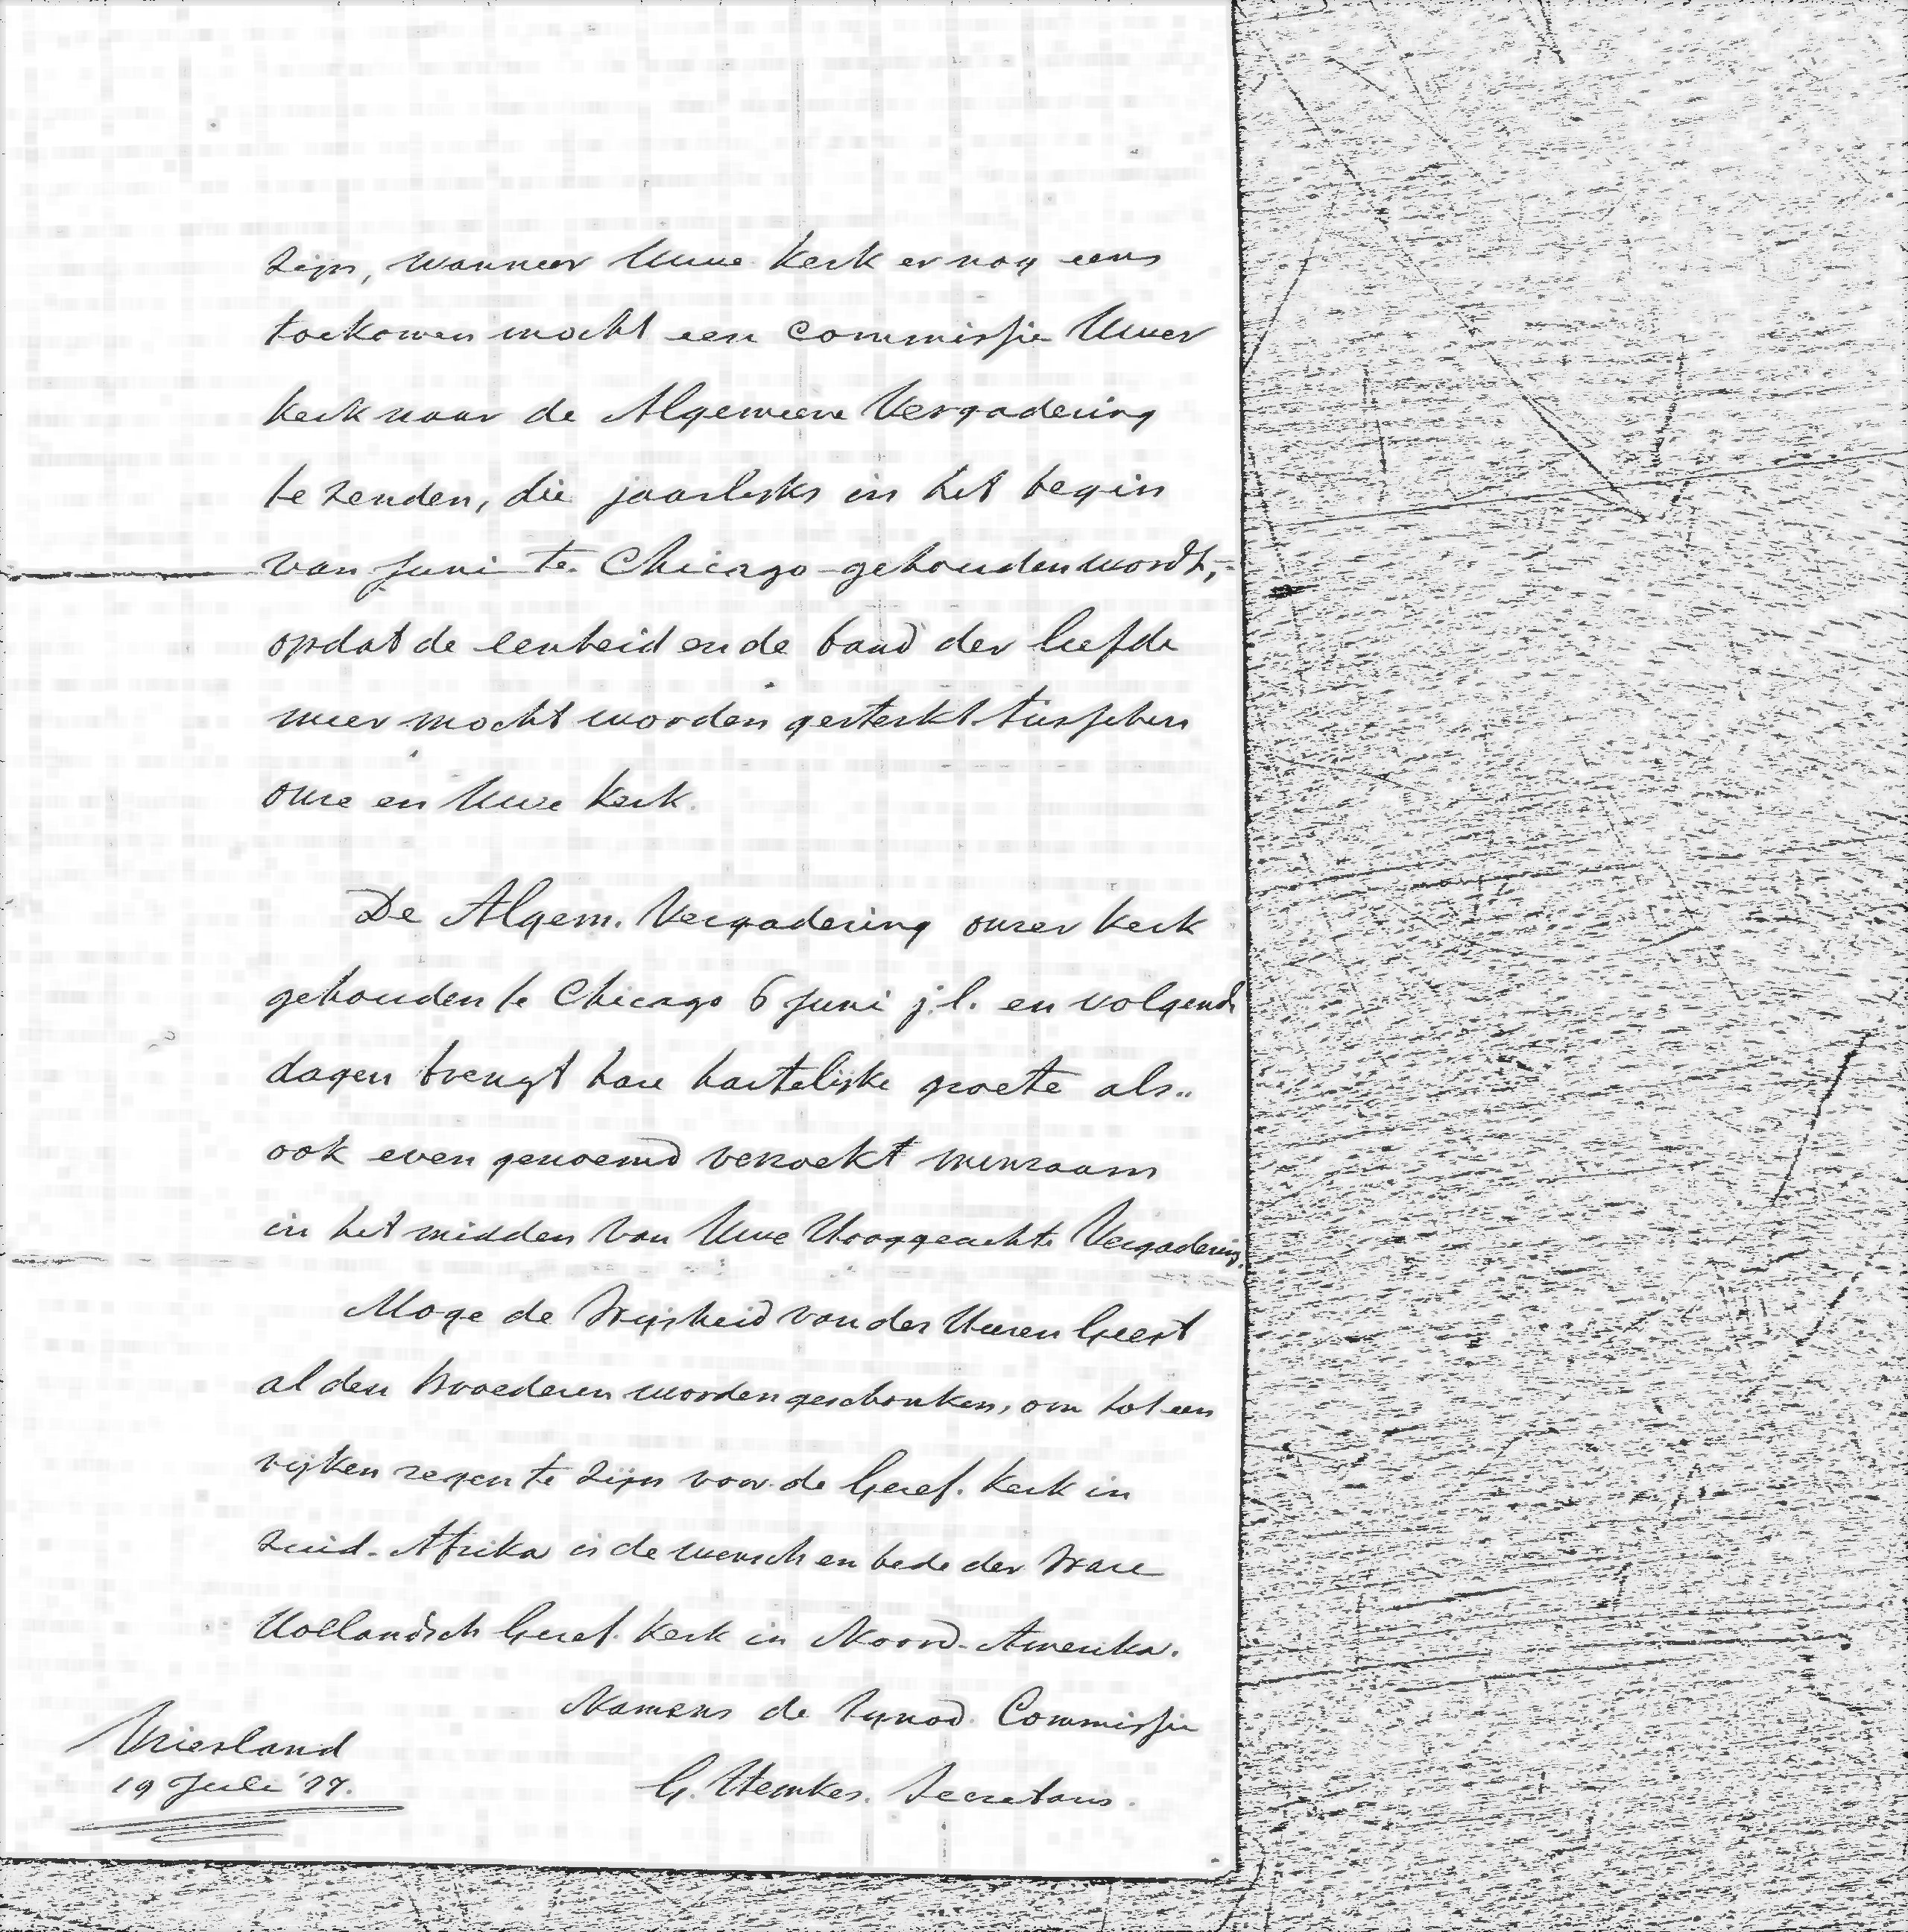 zijn, wanneer Uwe Kerk er nog eens
toekomen mocht een Commissie Uwer
Kerk naar de Algemeene Vergadering
te zenden, die jaarlijks in het begin
van Juni te Chicago gehouden wordt,
opdat de eenheid en de band der liefde
meer mocht worden gesterkt tusschen
onze en Uwe Kerk.
De Algem. Vergadering onzer Kerk
gehouden te Chicago 6 Juni j.l. en volgende
dagen brengt hare hartelijke groete als..
ook even genoemd verzoekt minzaam
in het midden van Uwe Hooggeachte Vergadering.
Moge de Wijsheid van den Heeren Geest
al den Broederen worden geschonken, om tot een
rijken zegen te zijn voor de Geref. Kerk in
Zuid-Afrika is de wensch en bede der Ware
Hollandsch Geref. Kerk in Noord-Amerika.
Namens de Synod. Commissie
G. Hemkes. Secretaris.
Vriesland
19 Juli '77.